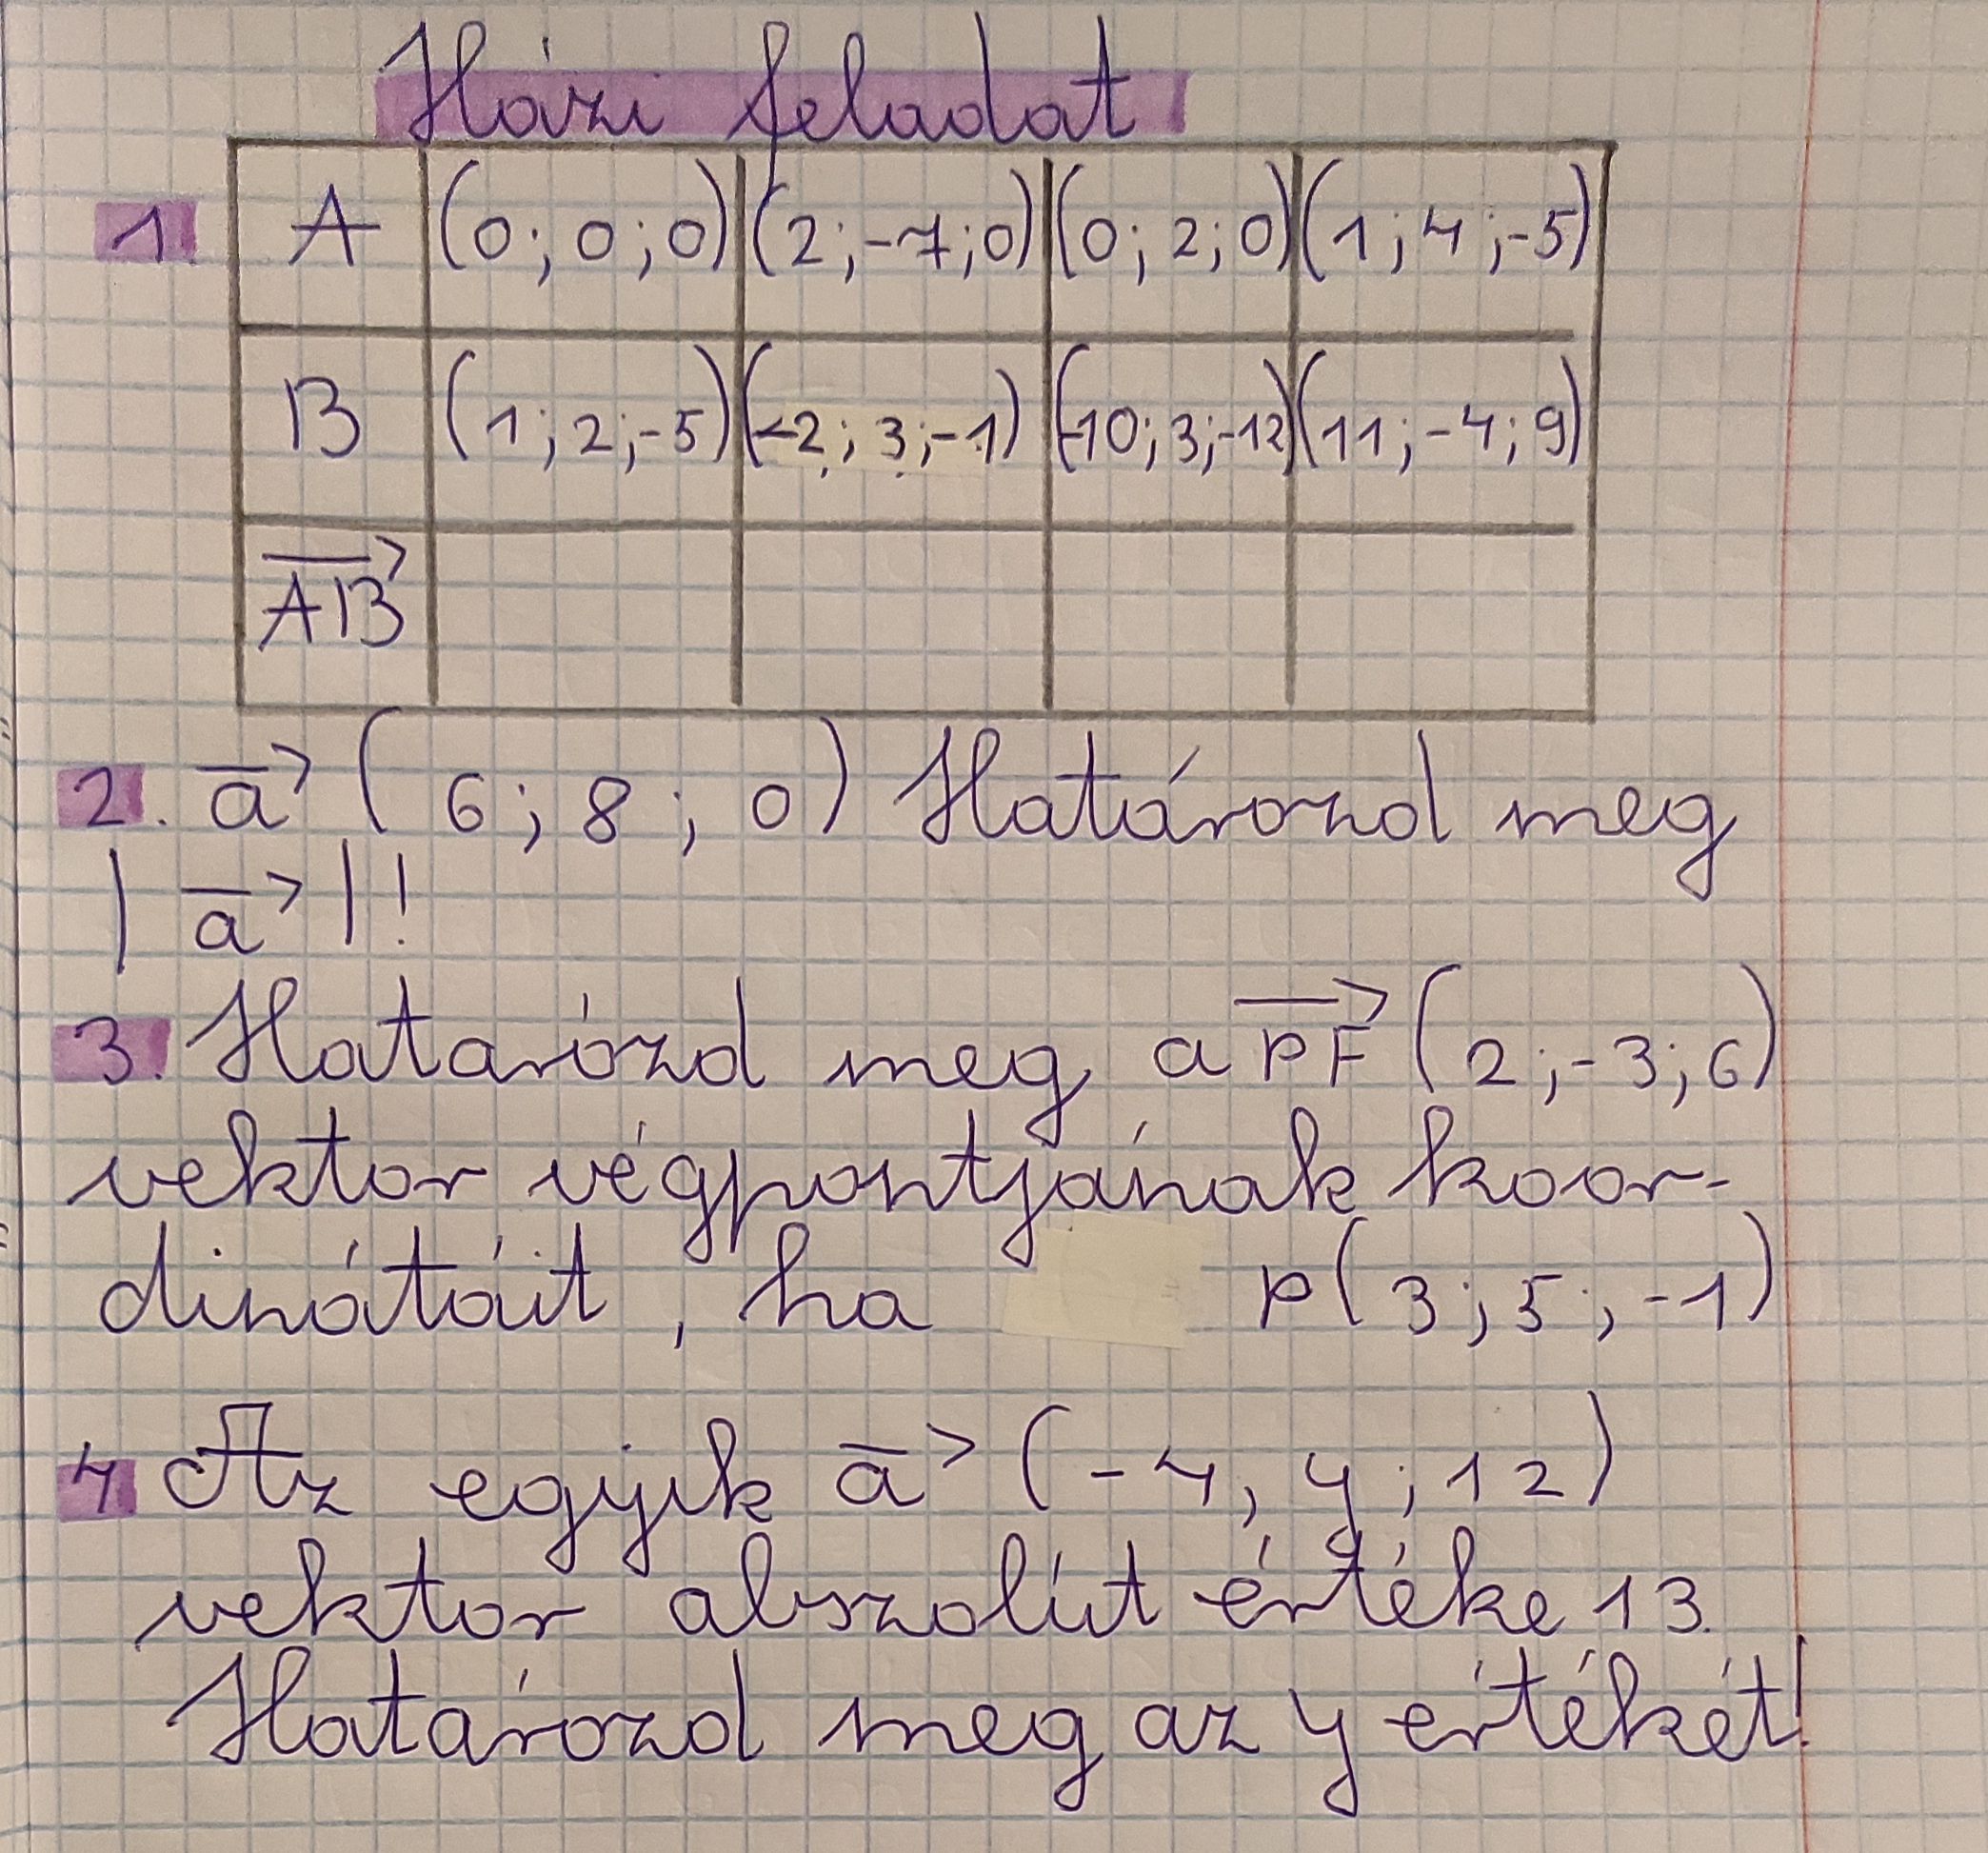 Házi feladat
1. A (0; 0; 0) (2; -7; 0) (0; 2; 0) (1; 4; -5)
B (1; 2; -5) (-2; 3; -1) (-10; 3; -12) (11; -4; 9)
AB→
2. a→ ( 6; 8; 0) Határozd meg
| a→ |!
3. Határózd meg a PF→ (2; -3; 6)
vektor végpontjának koor-
dinátáit, ha P(3; 5; -1)
4 Az egyik a→ (-4, y; 12)
vektor abszolút értéke 13.
Határozd meg az y értékét!